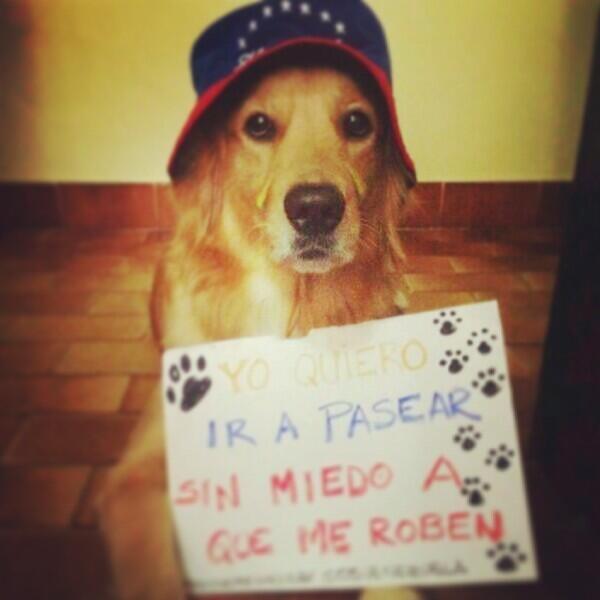 YO QUIERO
IR A PASEAR
SIN MIEDO A
QUE ME ROBEN